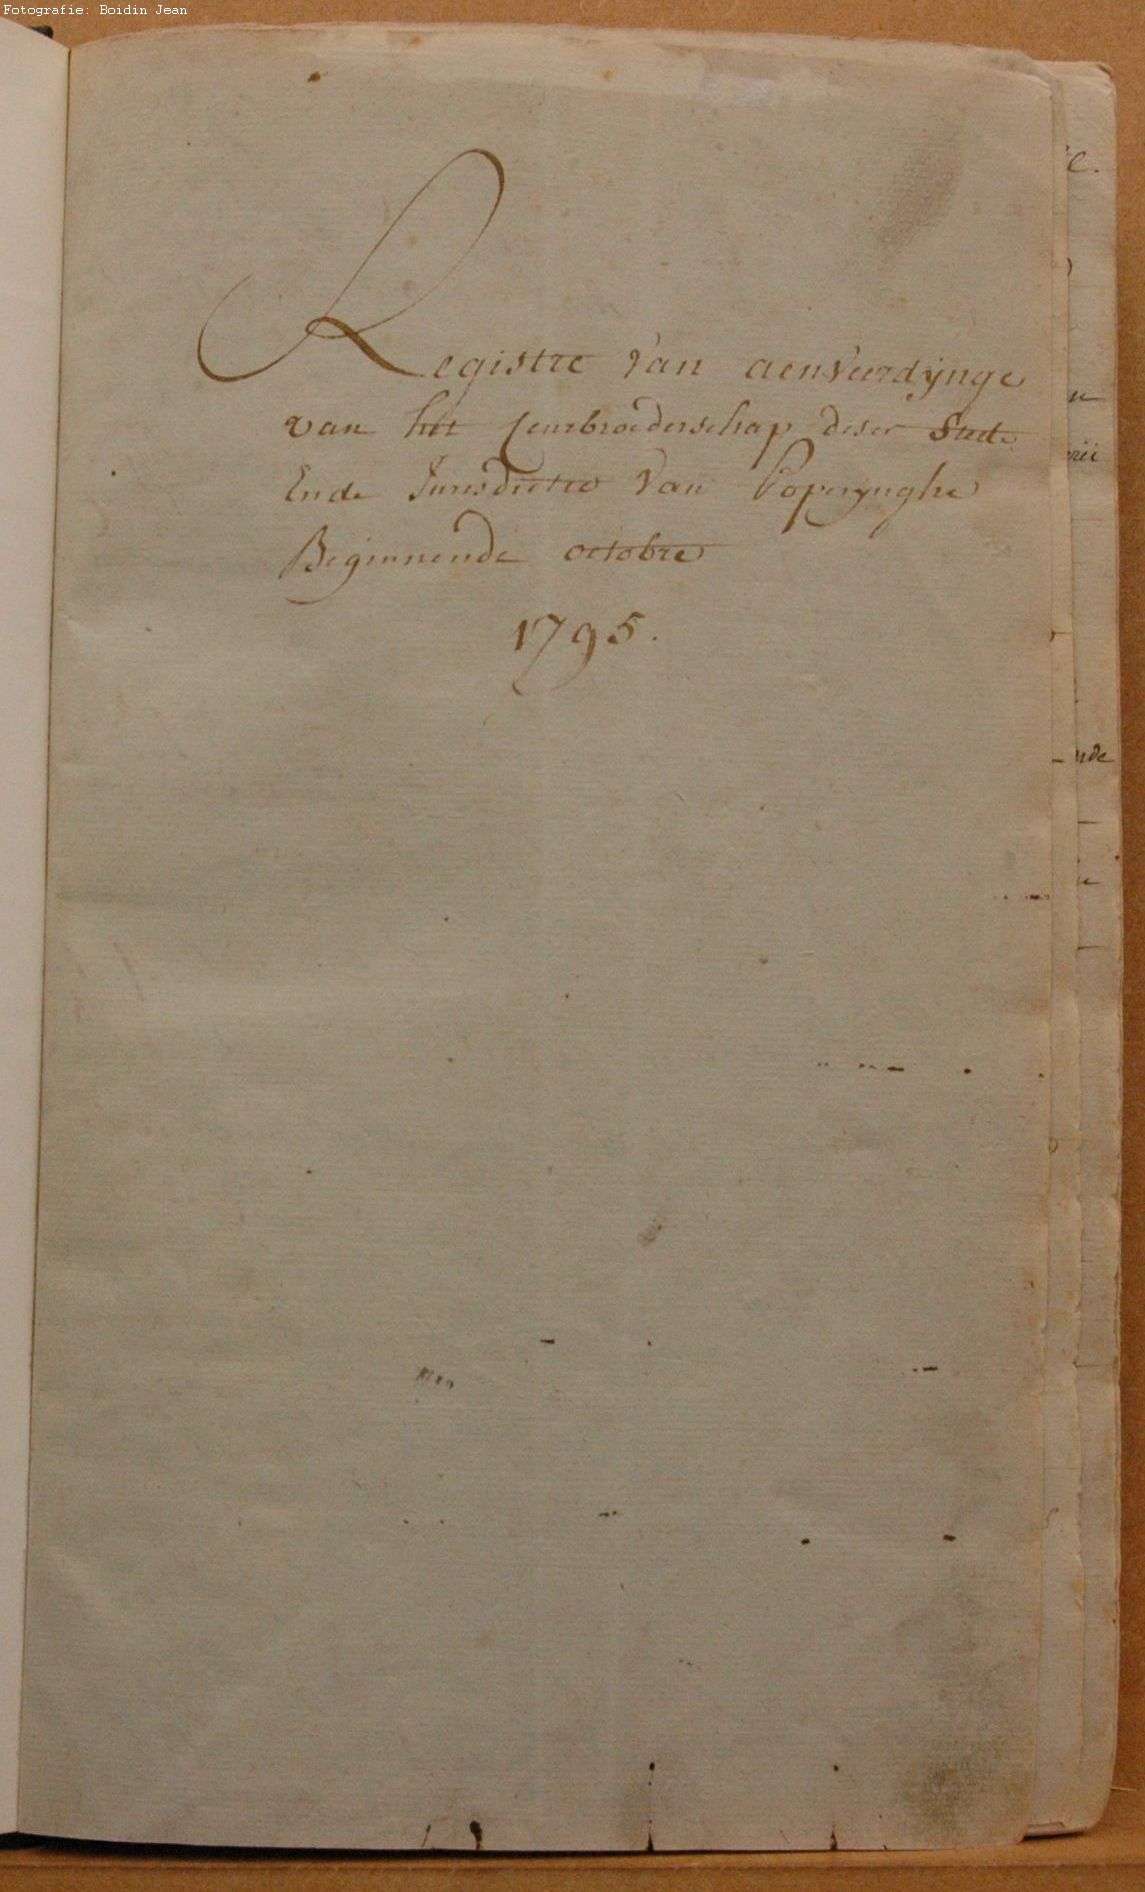 Fotografie: Boidin Jean
Registre van aenveerdijnge
van het Ceurbroederschap deser Stede
Ende Jurisdictie van Poperijnghe
Beginnende octobre
1795.
nde